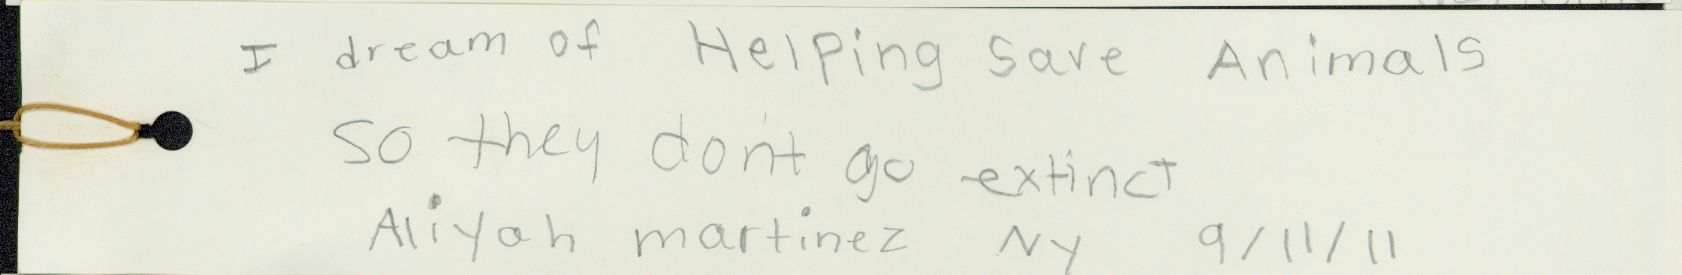 I dream of Helping save Animals
so they don't go extinct
Aliyah martinez Ny 9/11/11